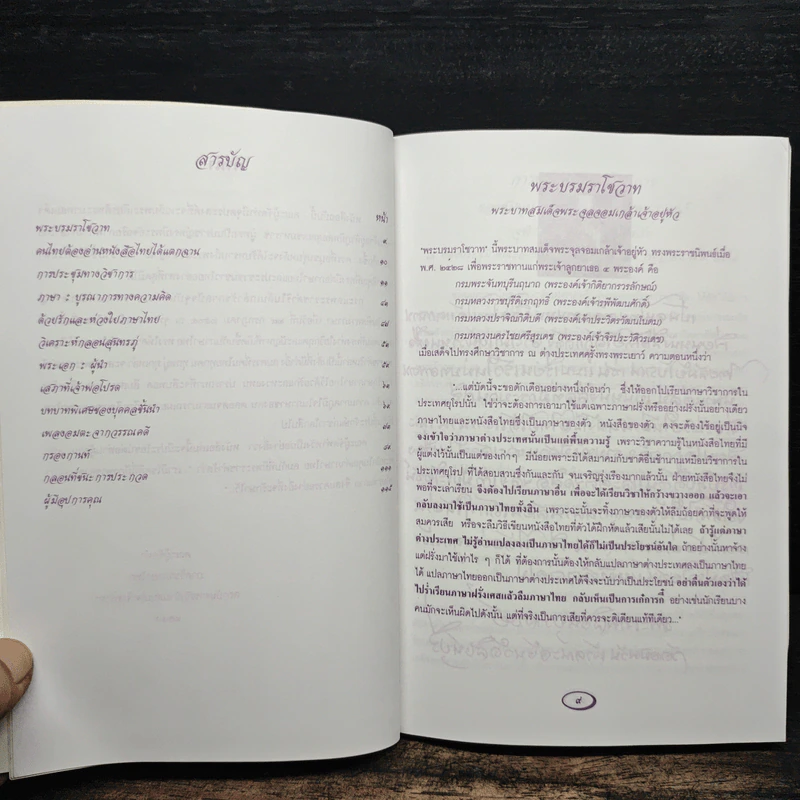 สารบัญ
หน้า
พระบรมราโชวาท ๙
คนไทยต้องอ่านหนังสือไทยได้แตกฉาน ๑๐
การประชุมทางวิชาการ
ภาษา : บูรณาการทางความคิด
ด้วยรักและห่วงใยภาษาไทย
วิเคราะห์กลอนสุนทรภู่
พระเอก : ผู้นำ
เสภาที่เจ้าพ่อโปรด
บทบาทพิเศษของบุคคลชั้นนำ
เพลงอมตะจากวรรณคดี
กรองกานท์
กลอนที่ชนะการประกวด
ผู้มีอุปการคุณ
พระบรมราโชวาท
พระบาทสมเด็จพระจุลจอมเกล้าเจ้าอยู่หัว
"พระบรมราโชวาท" นี้พระบาทสมเด็จพระจุลจอมเกล้าเจ้าอยู่หัว ทรงพระราชนิพนธ์เมื่อ
พ.ศ. ๒๔๒๘ เพื่อพระราชทานแก่พระเจ้าลูกยาเธอ ๔ พระองค์ คือ
กรมพระจันทบุรีนฤนาถ (พระองค์เจ้ากิติยากรวรลักษณ์)
กรมหลวงราชบุรีดิเรกฤทธิ์ (พระองค์เจ้ารพีพัฒนศักดิ์)
กรมหลวงปราจิณกิติบดี (พระองค์เจ้าประวิตรวัฒโนดม)
กรมหลวงนครไชยศรีสุรเดช (พระองค์เจ้าจิรประวัติวรเดช)
เมื่อเสด็จไปทรงศึกษาวิชาการ ณ ต่างประเทศครั้งทรงพระเยาว์ ความตอนหนึ่งว่า
"...แต่บัดนี้จะขอตักเตือนอย่างหนึ่งก่อนว่า ซึ่งให้ออกไปเรียนภาษาวิชาการใน
ประเทศยุโรปนั้น ใช่ว่าจะต้องการเอามาใช้แต่เฉพาะภาษาฝรั่งหรืออย่างฝรั่งนั้นอย่างเดียว
ภาษาไทยและหนังสือไทยซึ่งเป็นภาษาของตัว หนังสือของตัว คงจะต้องใช้อยู่เป็นนิจ
จงเข้าใจว่าภาษาต่างประเทศนั้นเป็นแต่พื้นความรู้ เพราะวิชาความรู้ในหนังสือไทยที่มี
ผู้แต่งไว้นั้นเป็นแต่ของเก่าๆ มีน้อยเพราะมิได้สมาคมกับชาติอื่นช้านานเหมือนวิชาการใน
ประเทศยุโรป ที่ได้สอบสวนซึ่งกันและกัน จนเจริญรุ่งเรืองมากแล้วนั้น ฝ่ายหนังสือไทยจึงไม่
พอที่จะเล่าเรียน จึงต้องไปเรียนภาษาอื่น เพื่อจะได้เรียนวิชาให้กว้างขวางออก แล้วจะเอา
กลับลงมาใช้เป็นภาษาไทยทั้งสิ้น เพราะฉะนั้นจะทิ้งภาษาของตัวให้ลืมถ้อยคำที่จะพูดให้
สมควรเสีย หรือจะลืมวิธีเขียนหนังสือไทยที่ตัวได้ฝึกหัดแล้วเสียนั้นไม่ได้เลย ถ้ารู้แต่ภาษา
ต่างประเทศ ไม่รู้อ่านแปลงลงเป็นภาษาไทยได้ก็ไม่เป็นประโยชน์อันใด ถ้าอย่างนั้นหาจ้าง
แต่ฝรั่งมาใช้เท่าไร ๆ ก็ได้ ที่ต้องการนั้นต้องให้กลับแปลภาษาต่างประเทศลงเป็นภาษาไทย
ได้ แปลภาษาไทยออกเป็นภาษาต่างประเทศได้จึงจะนับว่าเป็นประโยชน์ อย่าตื่นตัวเองว่าได้
ไปร่ำเรียนภาษาฝรั่งเศสแล้วลืมภาษาไทย กลับเห็นเป็นการเก๋การกี๋ อย่างเช่นนักเรียนบาง
คนมักจะเห็นผิดไปดังนั้น แต่ที่จริงเป็นการเสียที่ควรจะติเตียนแท้ทีเดียว..."
๙